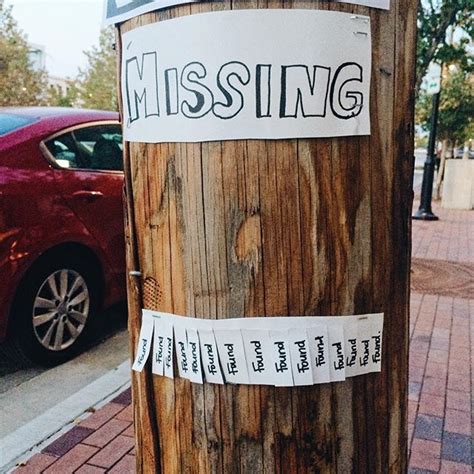 MISSING
Found Found Found Found Found Found Found Found Found Found Found Found Found Found Found.